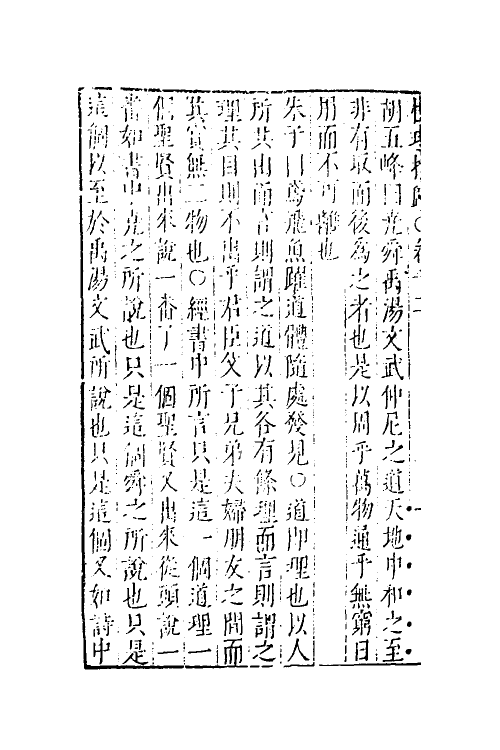 性理指歸○卷十二
胡五峰曰堯舜禹湯文武仲尼之道天地中和之至
非有取而後爲之者也是以周乎萬物通乎無窮日
用而不可離也
朱子曰鳶飛魚躍道體隨處發見○道即理也以人
所共由而言則謂之道以其各有條理而言則謂之
理其目則不出乎君臣父子兄弟夫婦朋友之間而
其實無二物也○經書中所言只是這一個道理一
個聖賢出來說一番了一個聖賢又出來從頭說一
番如書中堯之所說也只是這個舜之所說也只是
這個以至於禹湯文武所說也只是這個又如詩中